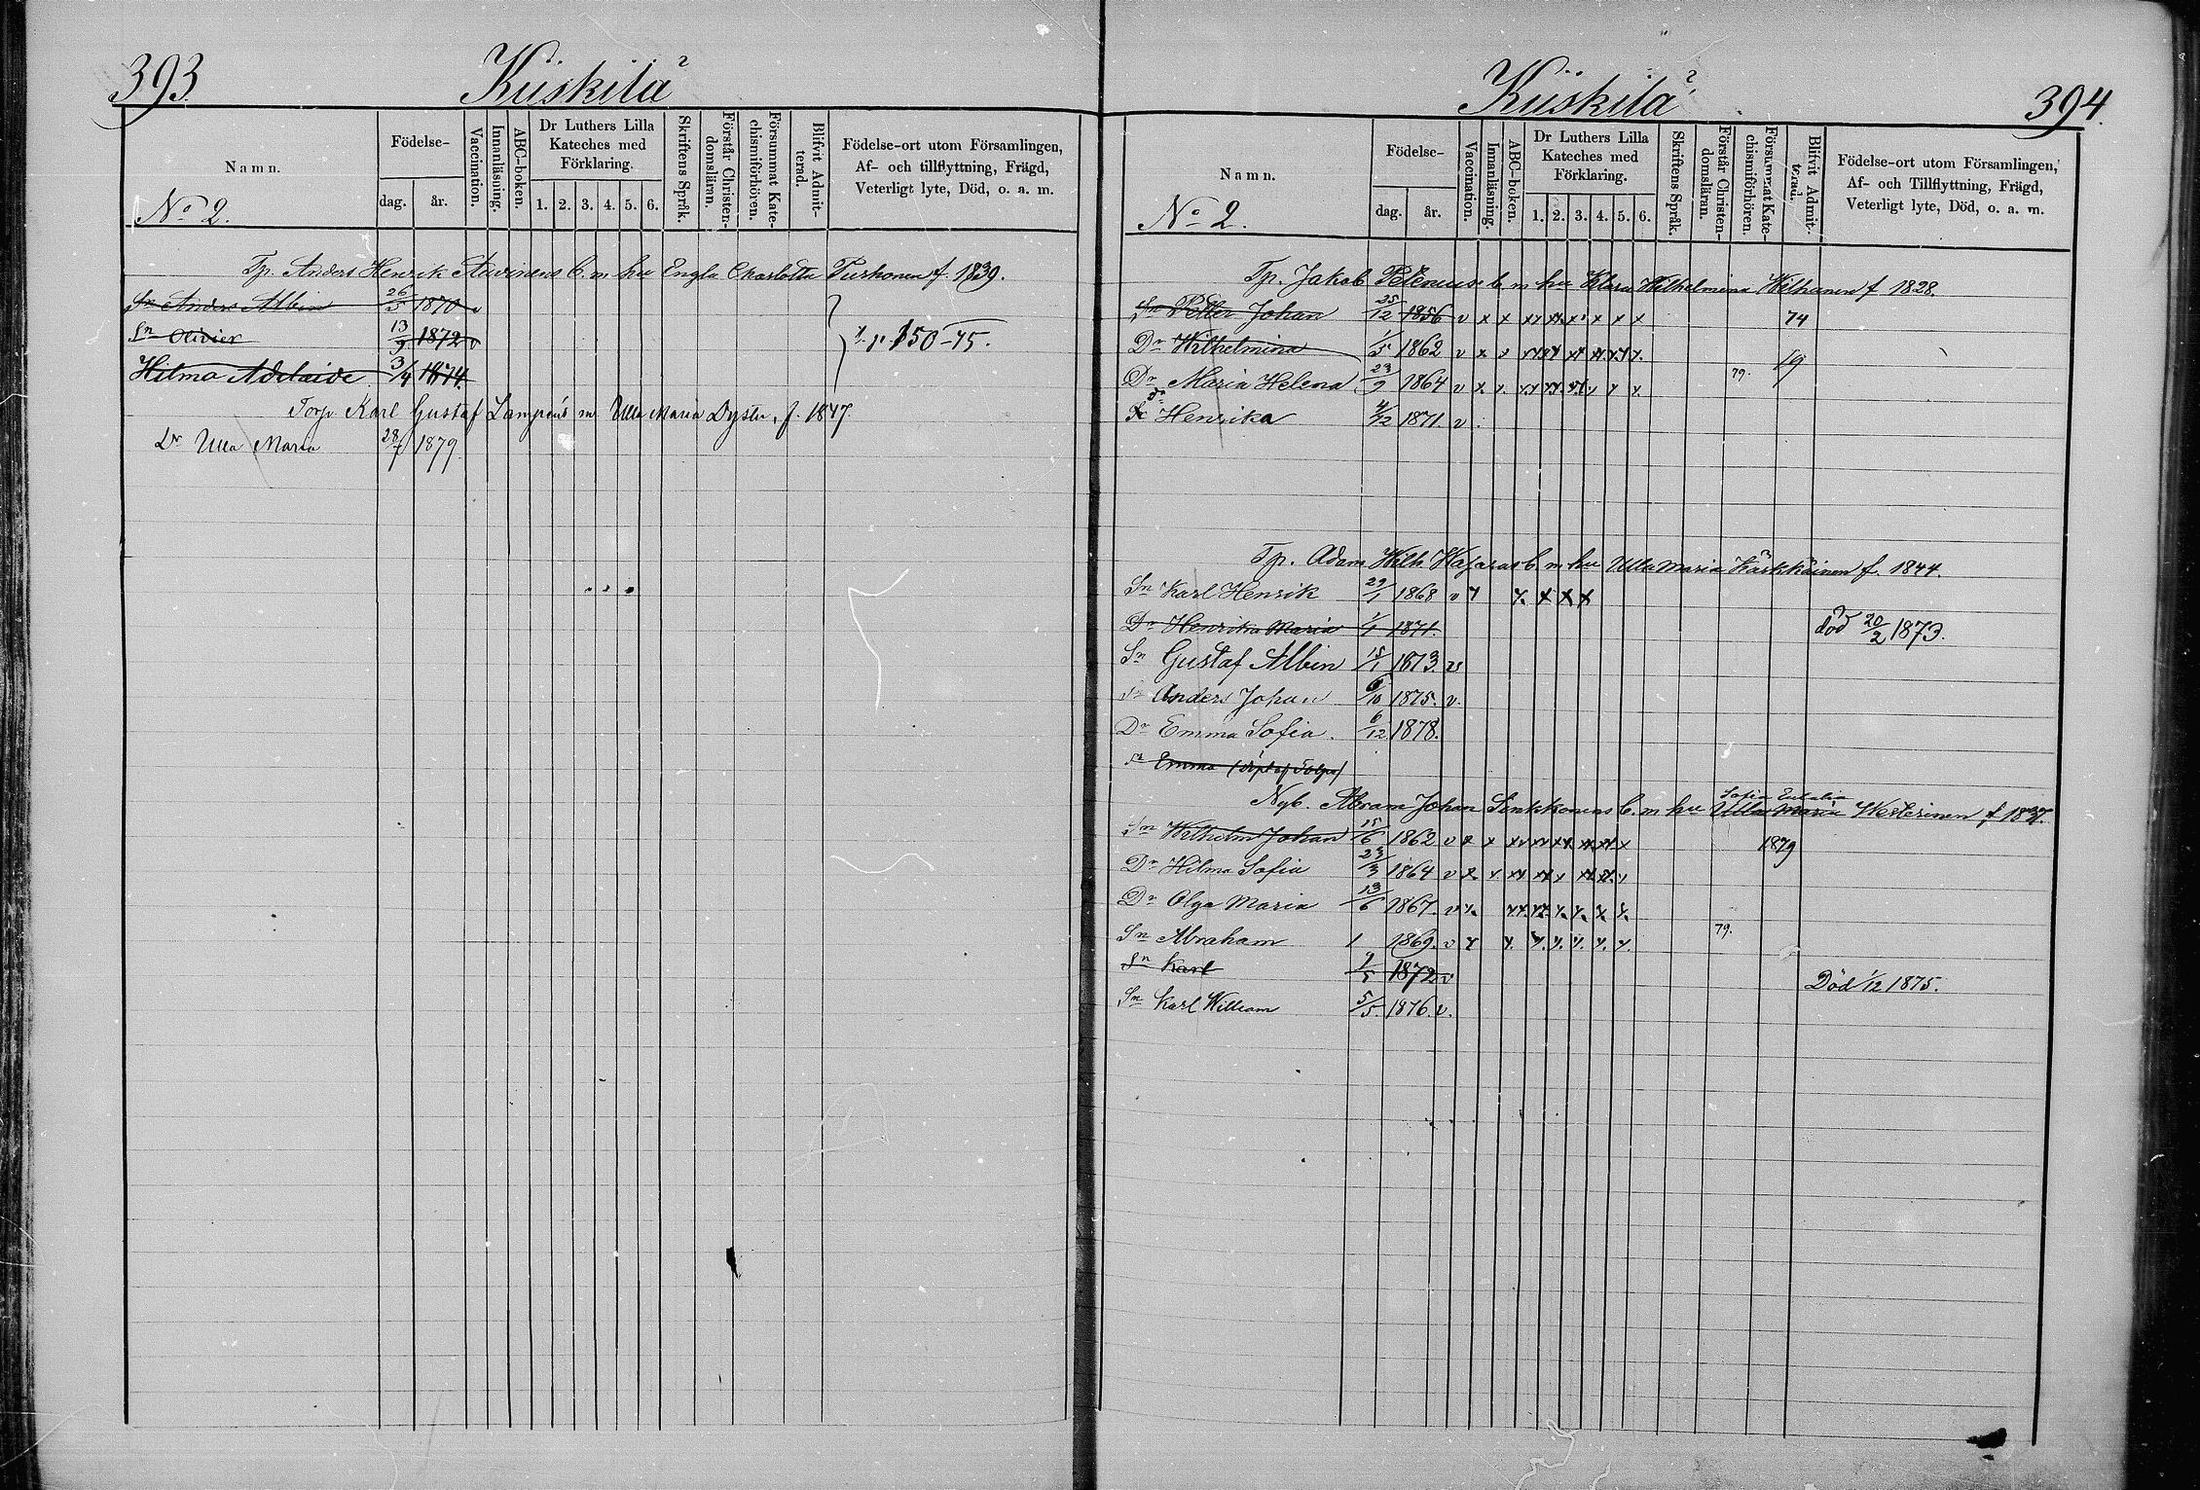 393. Kiiskilä
Namn.
Födelse-
dag. år.
Vaccination.
Innanläsning.
ABC-boken.
Dr Luthers Lilla Kateches med Förklaring.
1. 2. 3. 4. 5. 6.
Skriftens Språk.
Förstår Christendomsläran.
Försummat Katechismiförhören.
Blifvit Admitterad.
Födelse-ort utom Församlingen, Af- och tillflyttning, Frägd, Veterligt lyte, Död, o. a. m.
No 2.
Tp. Anders Henrik b. m. hu Engla Charlotta Turhonen f. 1839.
Sn Anders Albin 26/5 1870 v
Sn Olivier 13/9 1872 v
Hilma Adelaide 3/4 1874.
150-75.
Torp. Karl Gustaf m Ulla Maria Dyster, f. 1847.
Dr Ulla Maria 28/7 1879.
Kiiskilä 394.
Namn.
Födelse-
dag. år.
Vaccination.
Innanläsning.
ABC-boken.
Dr Luthers Lilla Kateches med Förklaring.
1. 2. 3. 4. 5. 6.
Skriftens Språk.
Förstår Christendomsläran.
Försummat Katechismiförhören.
Blifvit Admitterad.
Födelse-ort utom Församlingen, Af- och Tillflyttning, Frägd, Veterligt lyte, Död, o. a. m.
No 2.
Tp. Jakob b. m. hu Klara Wilhelmina f 1828.
Sn Petter Johan 25/12 1856 v x x 74
Dr Wilhelmina 1/5 1862 v x v 79
Dr Maria Helena 23/9 1864 v x x 79.
Dr Henrika 4/12 1871. v
Tp. Adam Wilh. b. m. hu Ulla Maria Härkkäinen f. 1844.
Sn Karl Henrik 29/1 1868 v x x x x x
Dr Henrika Maria 1/1 1871. död 20/2 1873.
Sn Gustaf Albin 15/1 1873. v
Sn Anders Johan 6/10 1875. v.
Dr Emma Sofia. 6/12 1878.
Emma
Nyb. Abram Johan Sinkkonens b. m. hu Ulla Maria Westerinen f 1837.
Sofia Eulalia
Sn Wilhelm Johan 15/6 1862 v x x 1879
Dr Hilma Sofia 23/3 1864 v x
Dr Olga Maria 13/6 1867. v x
Sn Abraham 1 1869. v x x. x. x. x. x. x. 79.
Sn Karl 9/5 1872 v Död 1/12 1875.
Sn Karl William 5/5. 1876. v.